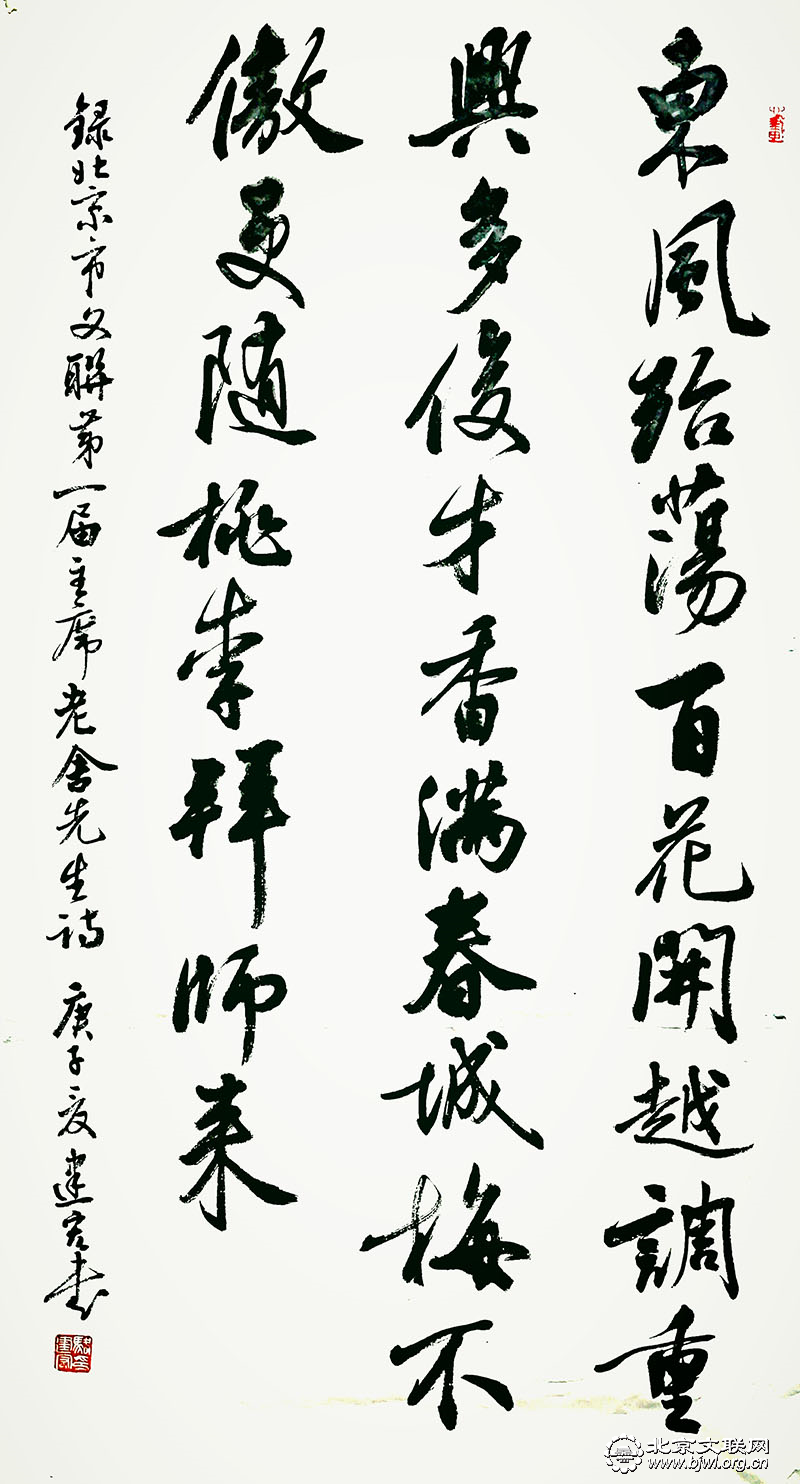 東風紿蕩百花開越調重
興多俊才香滿春城梅不
傲更随桃李拜師来
録北京市文聯第一届主席老舍先生诗 庚子夏建宏书
北京文联网
www.bjwl.org.cn